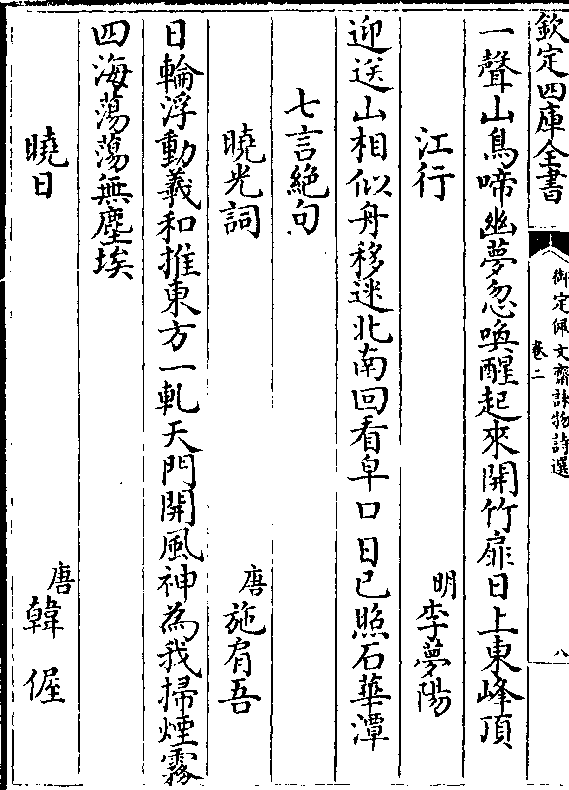 欽定四庫全書
御定佩文齋詠物詩選
卷二
八
一聲山鳥啼幽夢忽喚醒起來開竹扉日上東峰頂
江行
明李夢陽
迎送山相似舟移迷北南回看皁口日已照石華潭
七言絶句
曉光詞
唐施肩吾
日輪浮動羲和推東方一軋天門開風神為我掃煙霧
四海蕩蕩無塵埃
曉日
唐韓偓